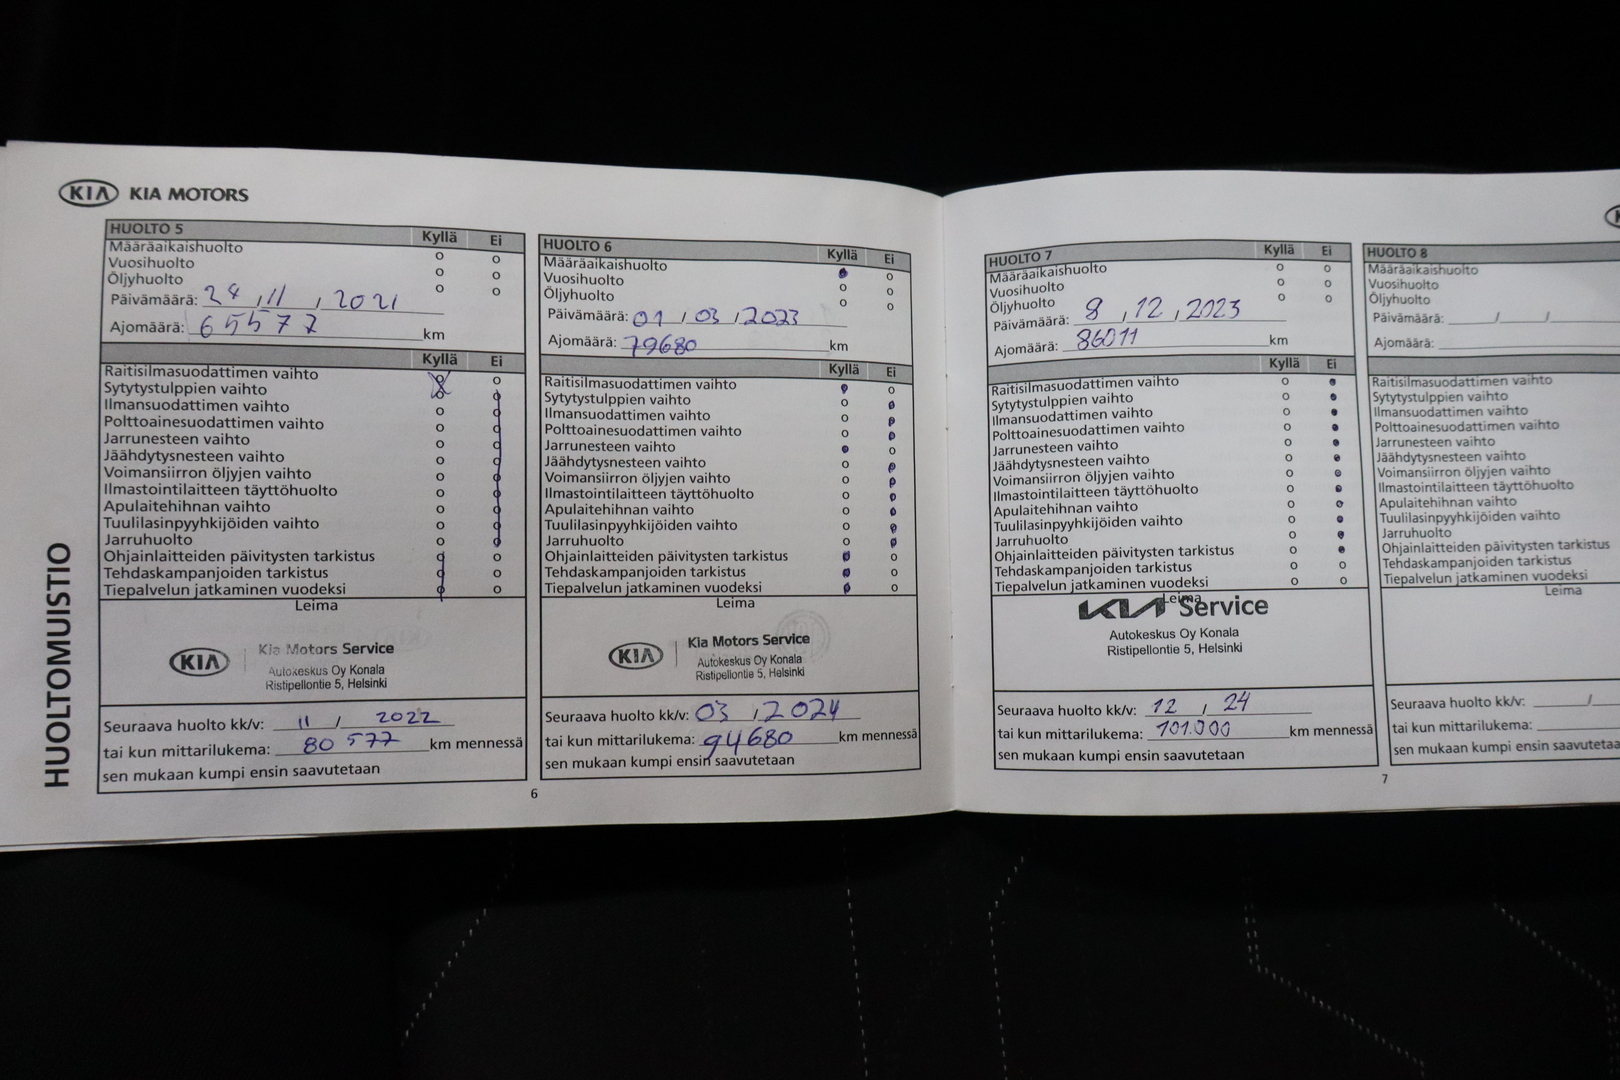 KIA KIA MOTORS
HUOLTOMUISTIO
HUOLTO 5 Kyllä Ei
Määräaikaishuolto
Vuosihuolto
Öljyhuolto
Päivämäärä: 24 / 11 / 2021
Ajomäärä: 65577 km
Kyllä Ei
Raitisilmasuodattimen vaihto
Sytytystulppien vaihto
Ilmansuodattimen vaihto
Polttoainesuodattimen vaihto
Jarrunesteen vaihto
Jäähdytysnesteen vaihto
Voimansiirron öljyjen vaihto
Ilmastointilaitteen täyttöhuolto
Apulaitehihnan vaihto
Tuulilasinpyyhkijöiden vaihto
Jarruhuolto
Ohjainlaitteiden päivitysten tarkistus
Tehdaskampanjoiden tarkistus
Tiepalvelun jatkaminen vuodeksi
Leima
KIA Kia Motors Service
Autokeskus Oy Konala
Ristipellontie 5, Helsinki
Seuraava huolto kk/v: 11 / 2022
tai kun mittarilukema: 80 577 km mennessä
sen mukaan kumpi ensin saavutetaan
HUOLTO 6 Kyllä Ei
Määräaikaishuolto
Vuosihuolto
Öljyhuolto
Päivämäärä: 01 / 03 / 2023
Ajomäärä: 79680 km
Kyllä Ei
Raitisilmasuodattimen vaihto
Sytytystulppien vaihto
Ilmansuodattimen vaihto
Polttoainesuodattimen vaihto
Jarrunesteen vaihto
Jäähdytysnesteen vaihto
Voimansiirron öljyjen vaihto
Ilmastointilaitteen täyttöhuolto
Apulaitehihnan vaihto
Tuulilasinpyyhkijöiden vaihto
Jarruhuolto
Ohjainlaitteiden päivitysten tarkistus
Tehdaskampanjoiden tarkistus
Tiepalvelun jatkaminen vuodeksi
Leima
KIA Kia Motors Service
Autokeskus Oy Konala
Ristipellontie 5, Helsinki
Seuraava huolto kk/v: 03 / 2024
tai kun mittarilukema: 94680 km mennessä
sen mukaan kumpi ensin saavutetaan
6
HUOLTO 7 Kyllä Ei
Määräaikaishuolto
Vuosihuolto
Öljyhuolto
Päivämäärä: 8 / 12 / 2023
Ajomäärä: 86011 km
Kyllä Ei
Raitisilmasuodattimen vaihto
Sytytystulppien vaihto
Ilmansuodattimen vaihto
Polttoainesuodattimen vaihto
Jarrunesteen vaihto
Jäähdytysnesteen vaihto
Voimansiirron öljyjen vaihto
Ilmastointilaitteen täyttöhuolto
Apulaitehihnan vaihto
Tuulilasinpyyhkijöiden vaihto
Jarruhuolto
Ohjainlaitteiden päivitysten tarkistus
Tehdaskampanjoiden tarkistus
Tiepalvelun jatkaminen vuodeksi
Leima
KIA Service
Autokeskus Oy Konala
Ristipellontie 5, Helsinki
Seuraava huolto kk/v: 12 / 24
tai kun mittarilukema: 101.000 km mennessä
sen mukaan kumpi ensin saavutetaan
HUOLTO 8
Määräaikaishuolto
Vuosihuolto
Öljyhuolto
Päivämäärä: / /
Ajomäärä:
Raitisilmasuodattimen vaihto
Sytytystulppien vaihto
Ilmansuodattimen vaihto
Polttoainesuodattimen vaihto
Jarrunesteen vaihto
Jäähdytysnesteen vaihto
Voimansiirron öljyjen vaihto
Ilmastointilaitteen täyttöhuolto
Apulaitehihnan vaihto
Tuulilasinpyyhkijöiden vaihto
Jarruhuolto
Ohjainlaitteiden päivitysten tarkistus
Tehdaskampanjoiden tarkistus
Tiepalvelun jatkaminen vuodeksi
Leima
Seuraava huolto kk/v: /
tai kun mittarilukema:
sen mukaan kumpi ensin saavutetaa
7